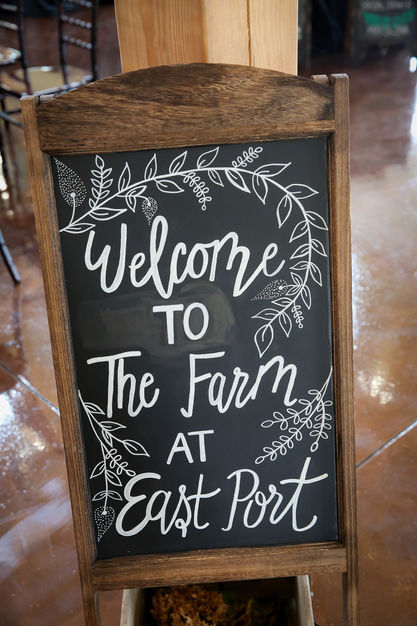 Welcome
TO
The Farm
AT
East Port